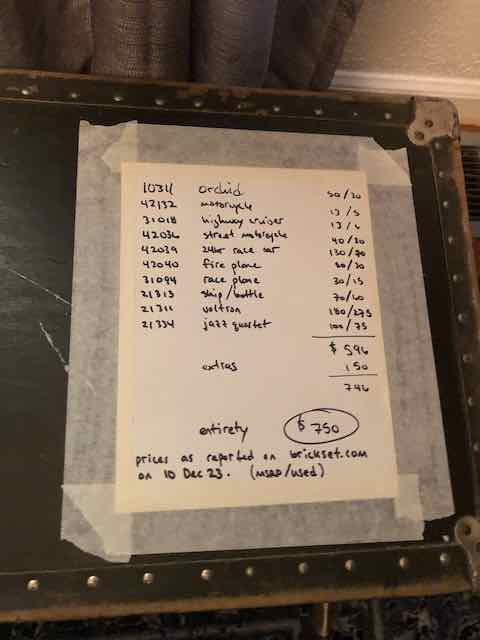 10311 orchid 50/30
42132 motorcycle 13/5
31018 highway cruiser 13/6
42036 street motorcycle 40/30
42039 24hr race car 130/70
42040 fire plane 50/30
31094 race plane 30/15
21313 ship/bottle 70/60
21311 voltron 180/275
21334 jazz quartet 100/75
$ 596
extras 150
746
entirety $ 750
prices as reported on brickset.com
on 10 Dec 23. (MSRP/used)